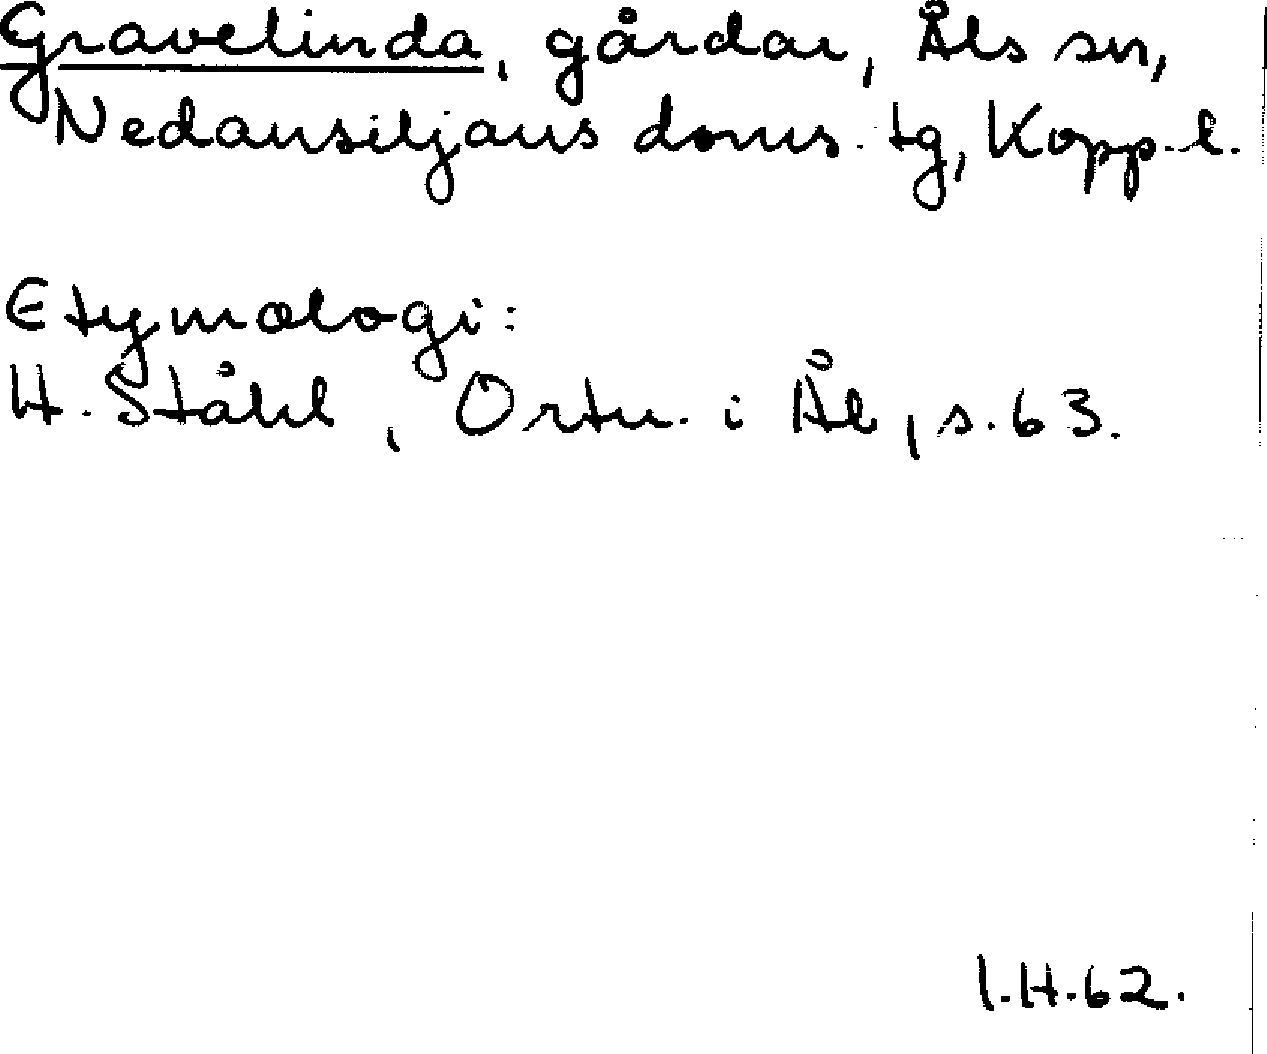 Gravelinda, gårdar, Åls sn,
Nedansiljans doms. tg, Kopp. l.
Etymologi:
H. Ståhl, Ortn. i Ål, s. 63.
I.H.62.